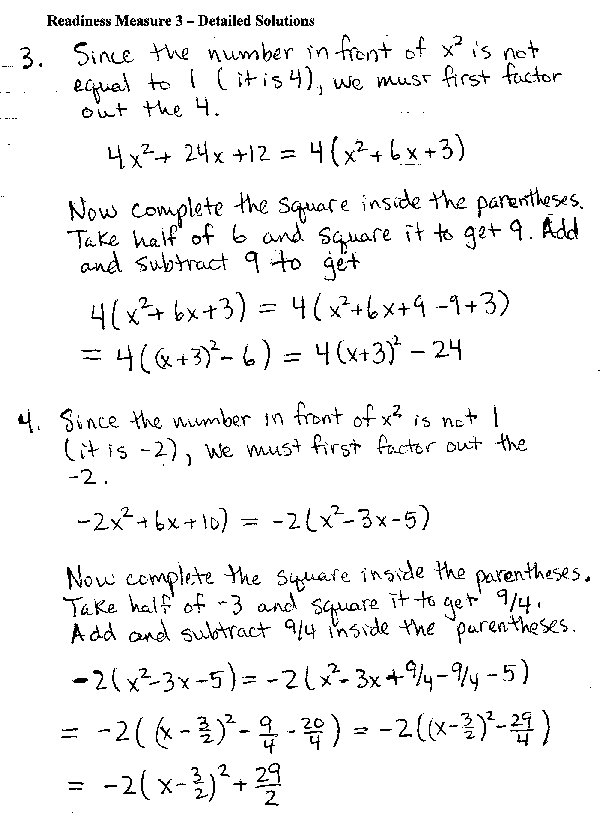 Readiness Measure 3 – Detailed Solutions
3. Since the number in front of x² is not
equal to 1 (it is 4), we must first factor
out the 4.
4x² + 24x + 12 = 4(x² + 6x + 3)
Now complete the square inside the parentheses.
Take half of 6 and square it to get 9. Add
and subtract 9 to get
4(x² + 6x + 3) = 4(x² + 6x + 9 - 9 + 3)
= 4((x + 3)² - 6) = 4(x + 3)² - 24
4. Since the number in front of x² is not 1
(it is -2), we must first factor out the
-2.
-2x² + 6x + 10) = -2(x² - 3x - 5)
Now complete the square inside the parentheses.
Take half of -3 and square it to get 9/4.
Add and subtract 9/4 inside the parentheses.
-2(x² - 3x - 5) = -2(x² - 3x + 9/4 - 9/4 - 5)
= -2((x - 3/2)² - 9/4 - 20/4) = -2((x - 3/2)² - 29/4)
= -2(x - 3/2)² + 29/2